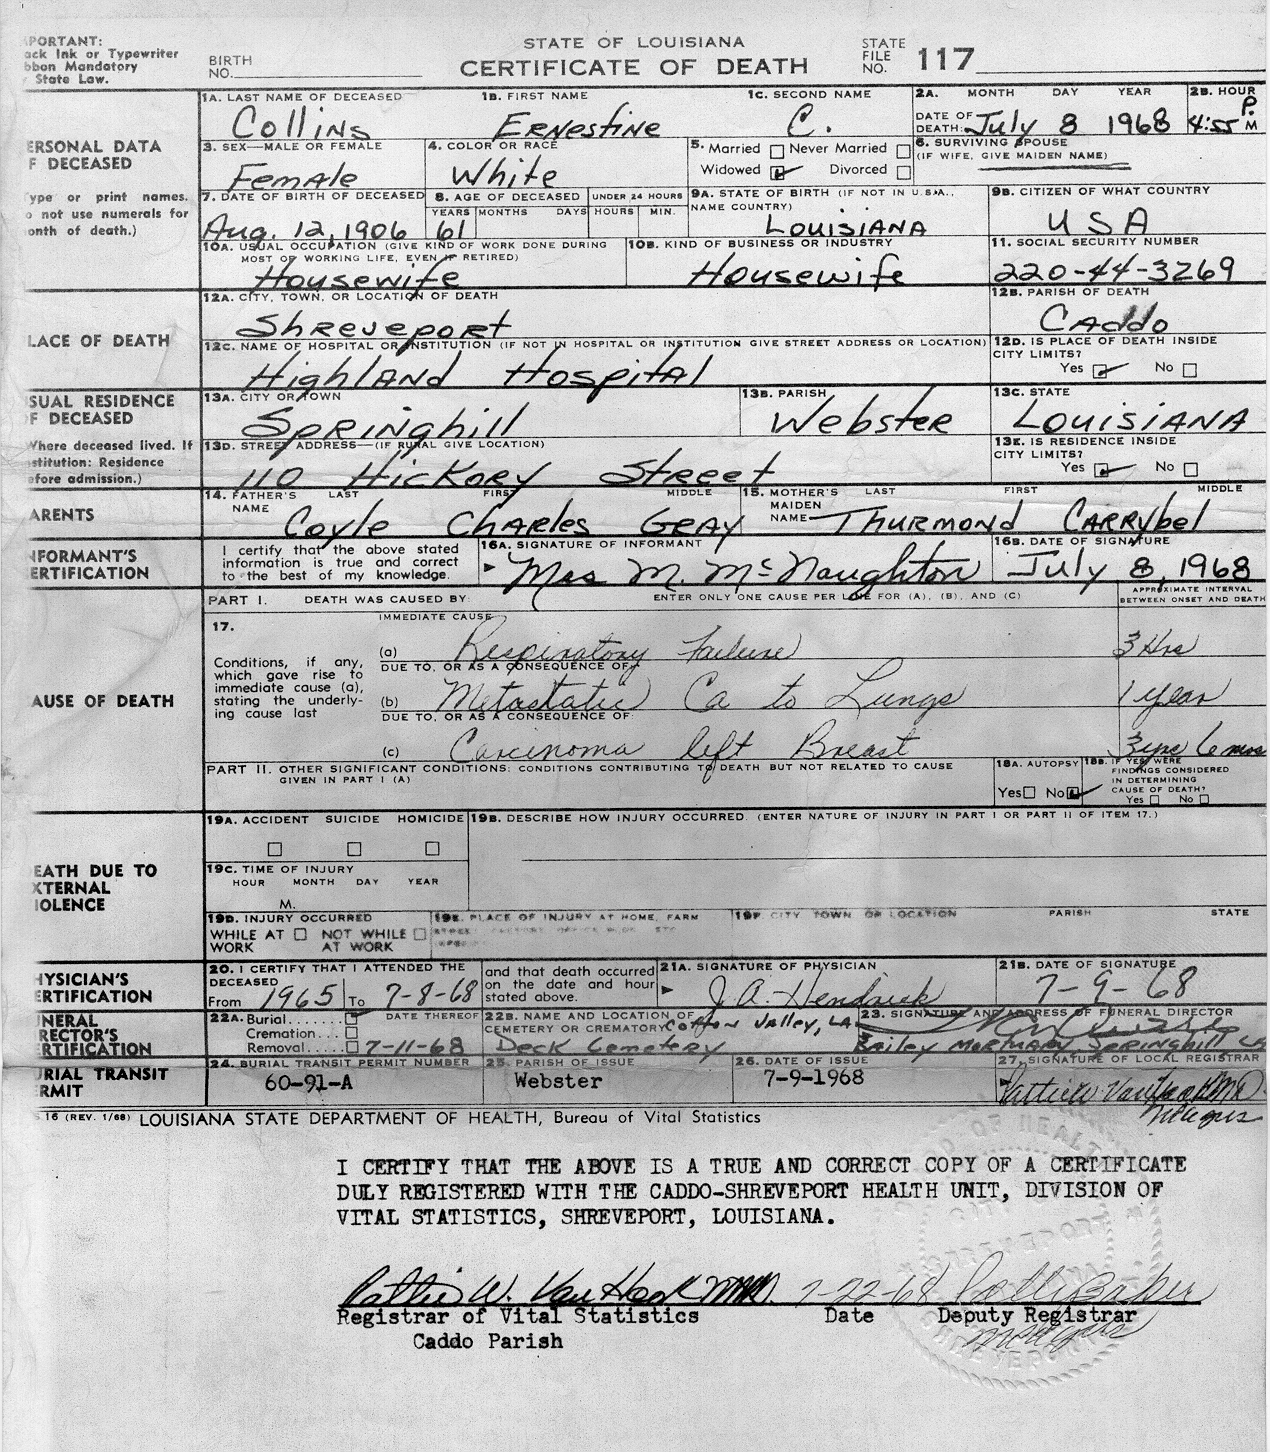 PORTANT:
ack Ink or Typewriter
bbon Mandatory
State Law.
BIRTH
NO.
STATE OF LOUISIANA
CERTIFICATE OF DEATH
STATE
FILE
NO. 117
ERSONAL DATA
F DECEASED
ype or print names.
o not use numerals for
onth of death.)
1A. LAST NAME OF DECEASED 1B. FIRST NAME 1C. SECOND NAME
Collins Ernestine C.
2A. MONTH DAY YEAR
DATE OF
DEATH: July 8 1968
2B. HOUR
4:55 P. M
3. SEX—MALE OR FEMALE
Female
4. COLOR OR RACE
White
5. Married Never Married
Widowed Divorced
6. SURVIVING SPOUSE
(IF WIFE, GIVE MAIDEN NAME)
7. DATE OF BIRTH OF DECEASED
Aug. 12, 1906
8. AGE OF DECEASED UNDER 24 HOURS
YEARS MONTHS DAYS HOURS MIN.
61
9A. STATE OF BIRTH (IF NOT IN U.S.A.,
NAME COUNTRY)
Louisiana
9B. CITIZEN OF WHAT COUNTRY
USA
10A. USUAL OCCUPATION (GIVE KIND OF WORK DONE DURING
MOST OF WORKING LIFE, EVEN IF RETIRED)
Housewife
10B. KIND OF BUSINESS OR INDUSTRY
Housewife
11. SOCIAL SECURITY NUMBER
220-44-3269
LACE OF DEATH
12A. CITY, TOWN, OR LOCATION OF DEATH
Shreveport
12B. PARISH OF DEATH
Caddo
12C. NAME OF HOSPITAL OR INSTITUTION (IF NOT IN HOSPITAL OR INSTITUTION GIVE STREET ADDRESS OR LOCATION)
Highland Hospital
12D. IS PLACE OF DEATH INSIDE
CITY LIMITS?
Yes No
SUAL RESIDENCE
F DECEASED
Where deceased lived. If
stitution: Residence
efore admission.)
13A. CITY OR TOWN
Springhill
13B. PARISH
Webster
13C. STATE
Louisiana
13D. STREET ADDRESS—(IF RURAL GIVE LOCATION)
110 Hickory Street
13E. IS RESIDENCE INSIDE
CITY LIMITS?
Yes No
ARENTS
14. FATHER'S LAST FIRST MIDDLE
NAME
Coyle Charles Gray
15. MOTHER'S LAST FIRST MIDDLE
MAIDEN
NAME
Thurmond Carrybel
NFORMANT'S
ERTIFICATION
I certify that the above stated
information is true and correct
to the best of my knowledge.
16A. SIGNATURE OF INFORMANT
Mrs M. McNaughton
16B. DATE OF SIGNATURE
July 8, 1968
AUSE OF DEATH
PART I. DEATH WAS CAUSED BY: ENTER ONLY ONE CAUSE PER LINE FOR (A), (B), AND (C)
APPROXIMATE INTERVAL
BETWEEN ONSET AND DEATH
17.
Conditions, if any,
which gave rise to
immediate cause (a),
stating the underly-
ing cause last
IMMEDIATE CAUSE
(a) Respiratory Failure 3 Hrs
DUE TO, OR AS A CONSEQUENCE OF:
(b) Metastatic Ca to Lungs 1 year
DUE TO, OR AS A CONSEQUENCE OF:
(c) Carcinoma left Breast 3 yrs 6 mos
PART II. OTHER SIGNIFICANT CONDITIONS: CONDITIONS CONTRIBUTING TO DEATH BUT NOT RELATED TO CAUSE
GIVEN IN PART I (A)
18A. AUTOPSY
Yes No
18B. IF YES, WERE
FINDINGS CONSIDERED
IN DETERMINING
CAUSE OF DEATH?
Yes No
EATH DUE TO
XTERNAL
IOLENCE
19A. ACCIDENT SUICIDE HOMICIDE
19B. DESCRIBE HOW INJURY OCCURRED. (ENTER NATURE OF INJURY IN PART I OR PART II OF ITEM 17.)
19C. TIME OF INJURY
HOUR MONTH DAY YEAR
M.
19D. INJURY OCCURRED
WHILE AT NOT WHILE
WORK AT WORK
19E. PLACE OF INJURY AT HOME, FARM
19F. CITY TOWN OR LOCATION PARISH STATE
HYSICIAN'S
ERTIFICATION
20. I CERTIFY THAT I ATTENDED THE
DECEASED
From 1965 To 7-8-68
and that death occurred
on the date and hour
stated above.
21A. SIGNATURE OF PHYSICIAN
J. A. Hendrick
21B. DATE OF SIGNATURE
7-9-68
UNERAL
RECTOR'S
ERTIFICATION
22A. Burial....... DATE THEREOF
Cremation....
Removal.... 7-11-68
22B. NAME AND LOCATION OF
CEMETERY OR CREMATORY Cotton Valley, LA
Deck Cemetery
23. SIGNATURE AND ADDRESS OF FUNERAL DIRECTOR
Bailey Mortuary Springhill La
URIAL TRANSIT
ERMIT
24. BURIAL TRANSIT PERMIT NUMBER
60-91-A
25. PARISH OF ISSUE
Webster
26. DATE OF ISSUE
7-9-1968
27. SIGNATURE OF LOCAL REGISTRAR
Pattie W. Van Hook MD
16 (REV. 1/68) LOUISIANA STATE DEPARTMENT OF HEALTH, Bureau of Vital Statistics
I CERTIFY THAT THE ABOVE IS A TRUE AND CORRECT COPY OF A CERTIFICATE
DULY REGISTERED WITH THE CADDO-SHREVEPORT HEALTH UNIT, DIVISION OF
VITAL STATISTICS, SHREVEPORT, LOUISIANA.
Pattie W. Van Hook 7-22-68 Patti Baker
Registrar of Vital Statistics Date Deputy Registrar
Caddo Parish